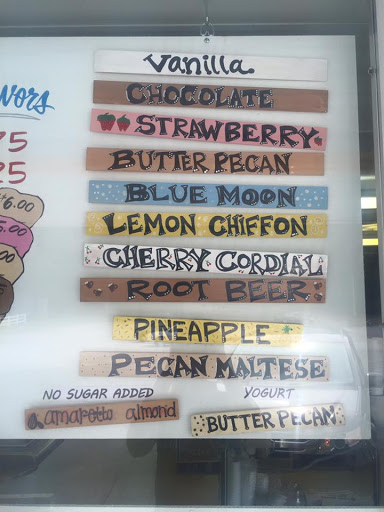 Vanilla
CHOCOLATE
STRAWBERRY
BUTTER PECAN
BLUE MOON
LEMON CHIFFON
CHERRY CORDIAL
ROOT BEER
PINEAPPLE
PECAN MALTESE
NO SUGAR ADDED
amaretto almond
YOGURT
BUTTER PECAN
vors
75
25
$6.00
5.00
.00